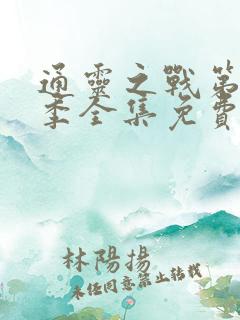 通靈之戰第
季全集免費
林陽揚
未任同意禁止轉載